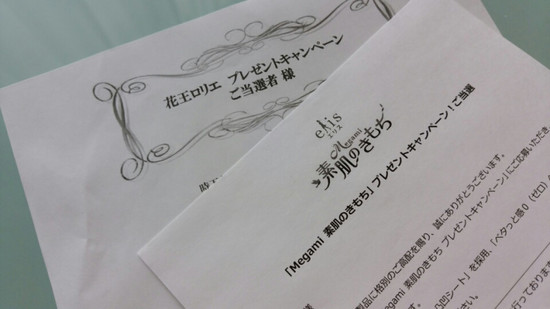 花王ロリエ プレゼントキャンペーン
ご当選者 様
elis
エリス
Megami
素肌のきもち
「Megami 素肌のきもち」プレゼントキャンペーン!ご当選
様
製品に格別のご高配を賜り、誠にありがとうございます。
Megami 素肌のきもち プレゼントキャンペーン」にご応募いただき
ます。
凸凹シート」を採用、「ベタっと感0(ゼロ)
さい。
行っております